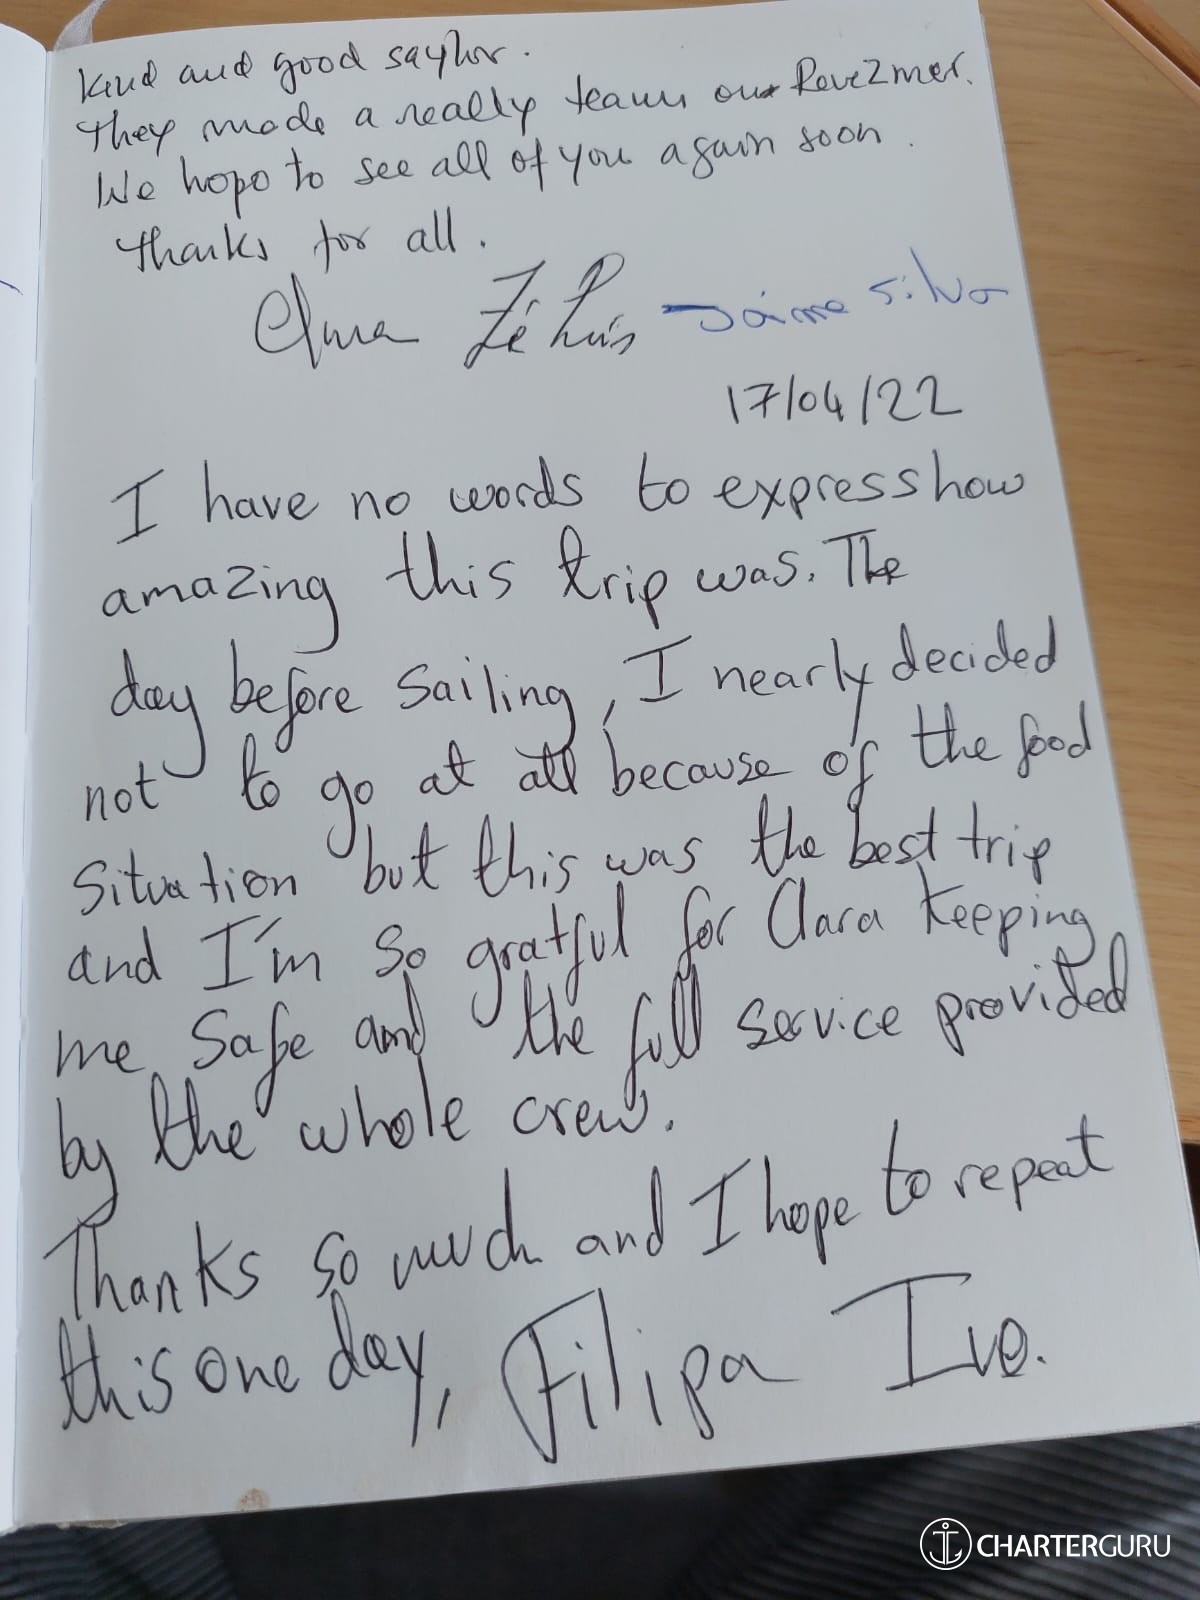 kind and good saylor.
They made a really team on Reve2mer.
We hope to see all of you again soon.
thanks for all.
Zé Luis Jaime Silva
17/04/22
I have no words to express how
amazing this trip was. The
day before sailing, I nearly decided
not to go at all because of the food
situation but this was the best trip
and I'm so gratful for Clara keeping
me safe and the full service provided
by the whole crew.
Thanks so much and I hope to repeat
this one day, Filipa Ivo.
CHARTERGURU